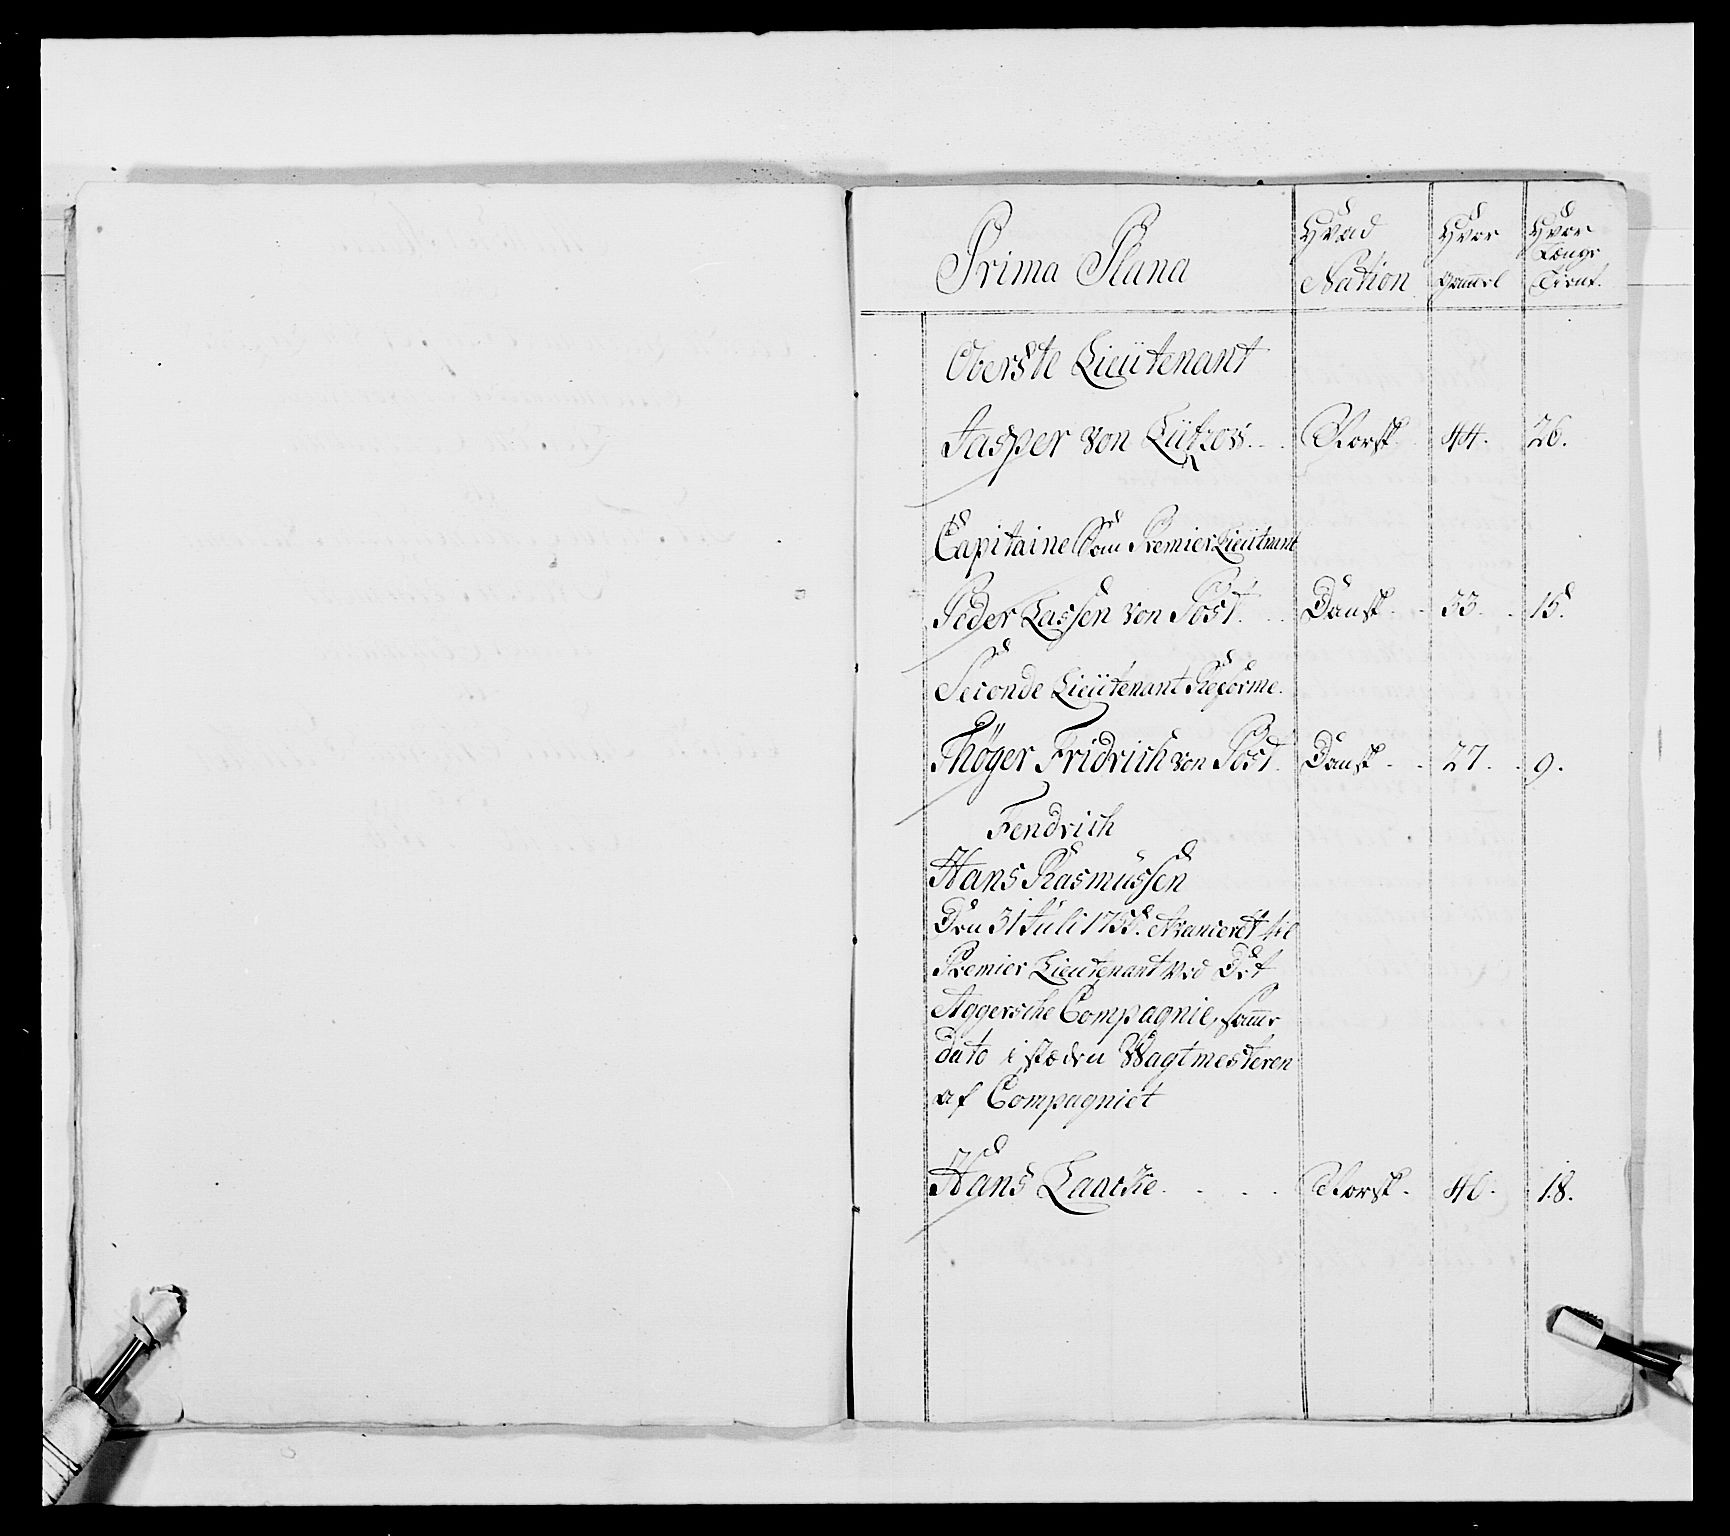 Prima Plana
Hvad Nation
Hvor gammel
Hvor Længe Tient.
Oberste Lieütenant
Jasper von Lützow. . . Norsk. 44. 26.
Capitaine Som Premier Lieütnant
Peder Lassen von Post. . . Dansk. . 33. . 15.
Seconde Lieütenant Reforme.
Thøger Fridrich von Post. Dansk. . 27. . 9.
Fendrich
Hans Rasmussen
Den 31 Juli 1755. Avanceret til
Premier Lieutenant ved Det
Aggersche Compagnie, samme
dato i stæden Wagtmesteren
af Compagniet
Hans Lancke. . . . Norsk. 40. 18.